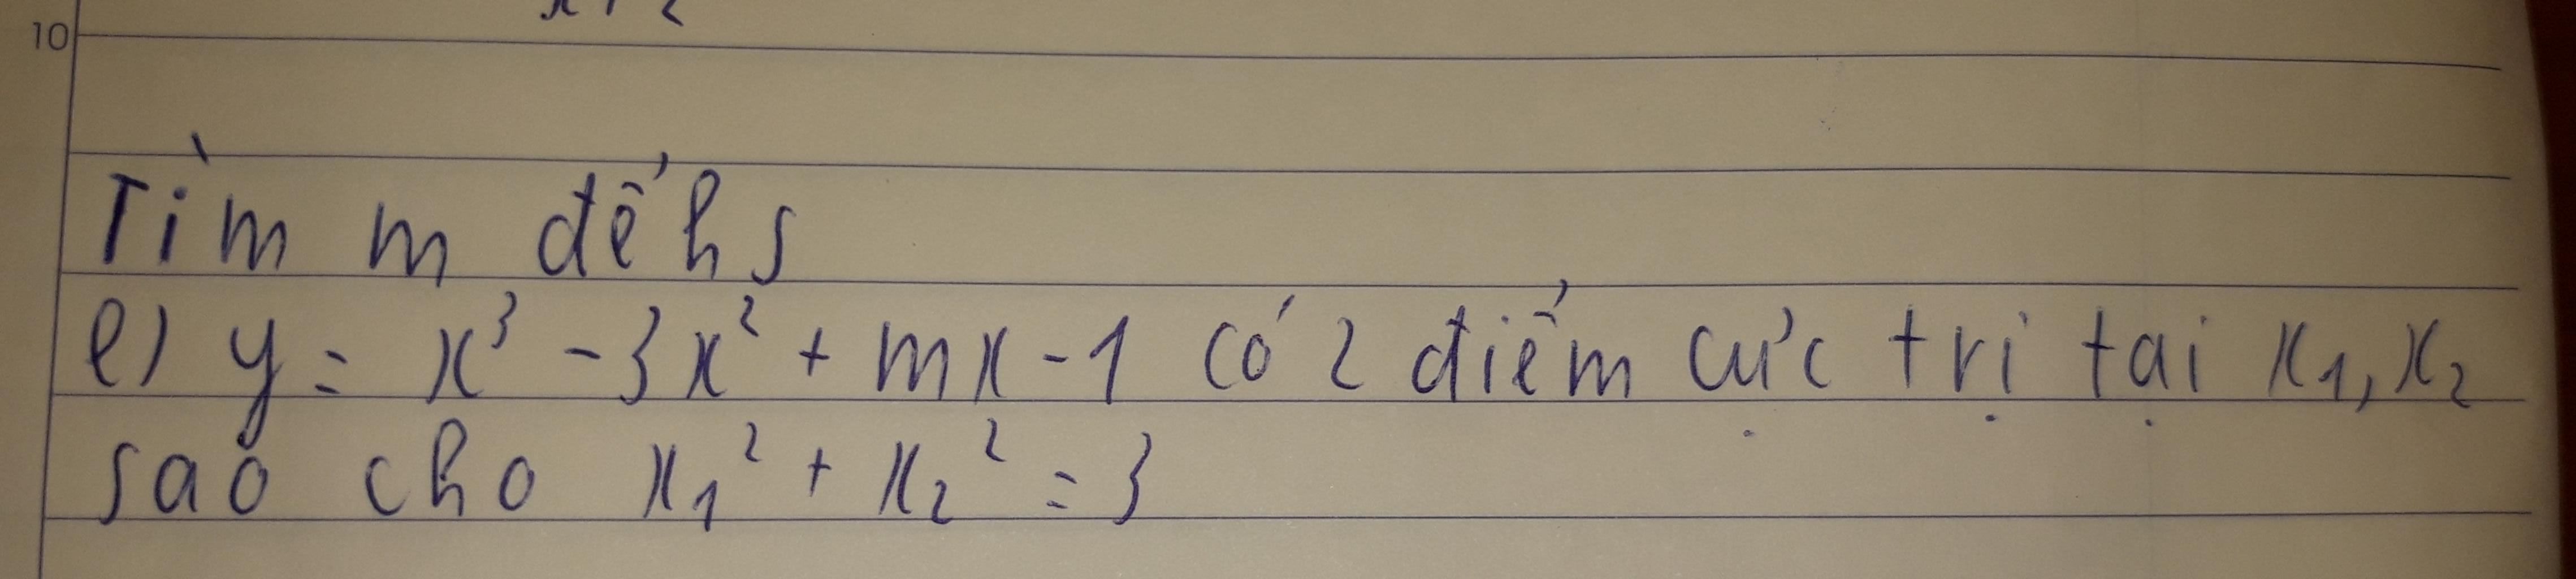 10
Tìm m để hs
e) y = x³ - 3x² + mx - 1 có 2 điểm cực trị tại x₁, x₂
sao cho x₁² + x₂² = 3